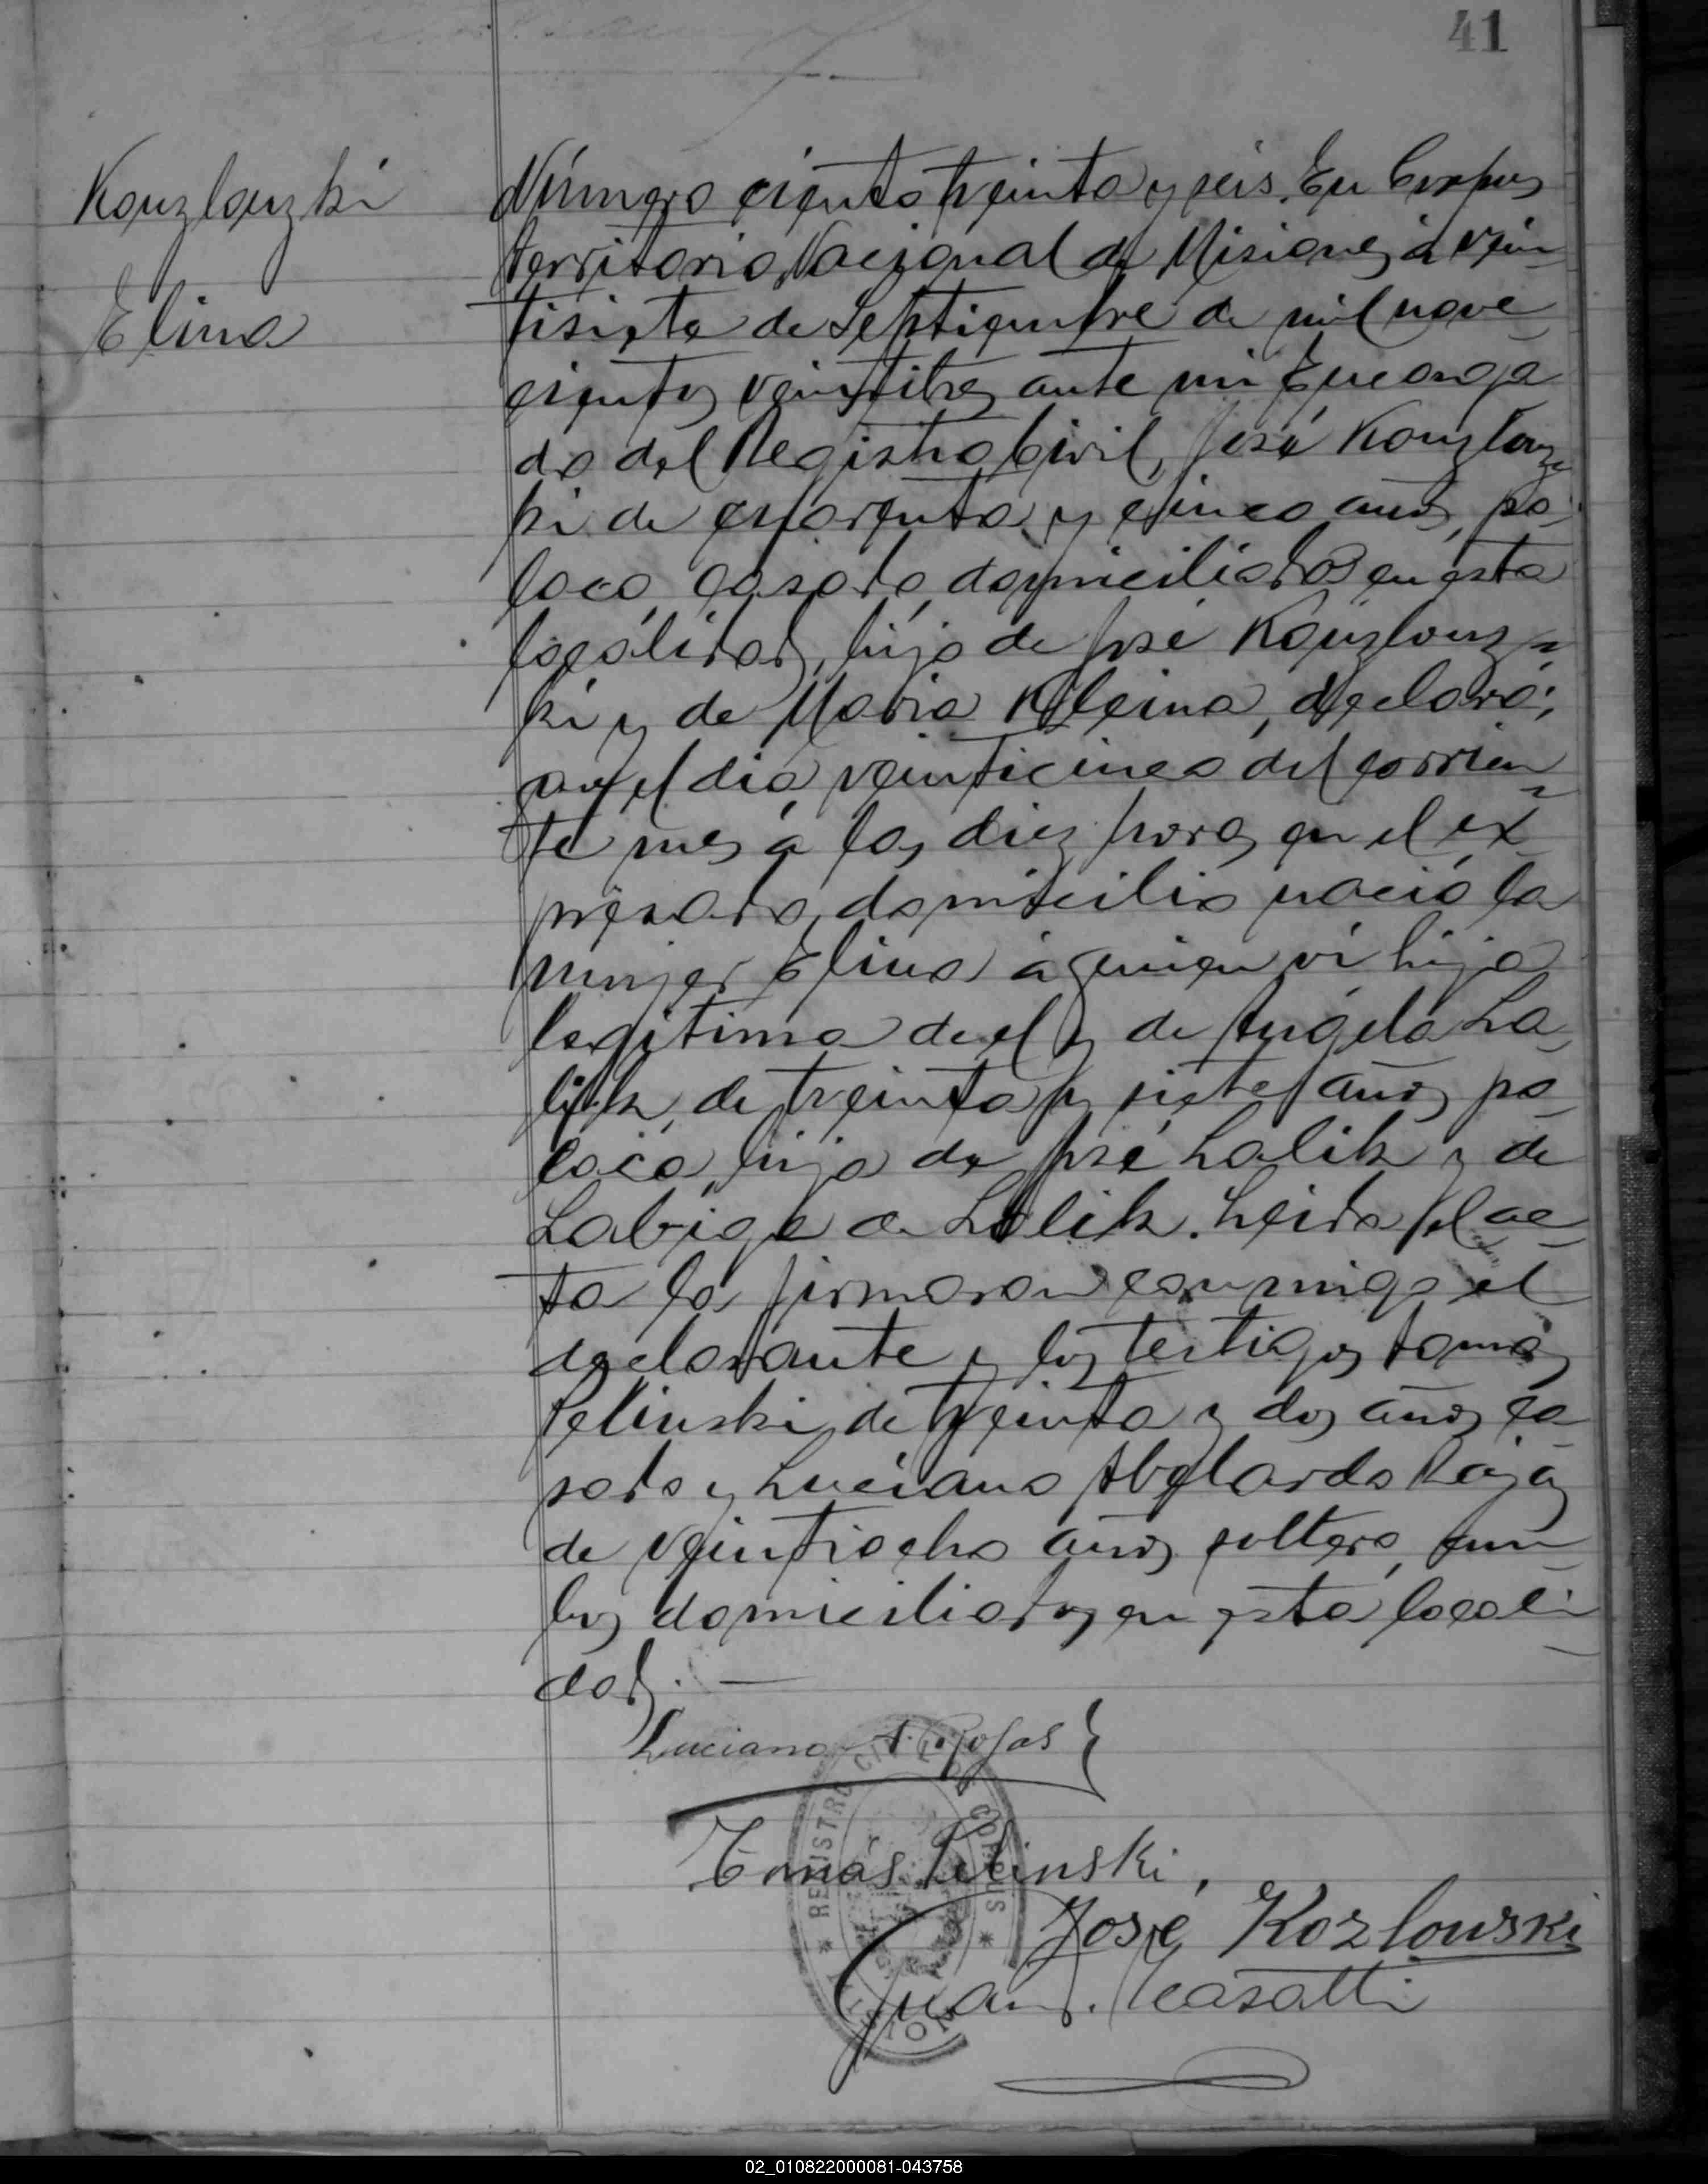 41
Kouzlouzki
Elina
Número ciento treinta y seis. En Corpus
territorio Nacional de Misiones á vein
tisiete de Septiembre de mil nove
cientos veintitres ante mi Encarga
do del Registro Civil, José Kouzlouz
ki de cuarenta y cinco años, po
laco, casado, domiciliado en esta
localidad, hijo de José Kouzlouz
ki y de Maria Kleina, declaró;
que el dia veinticinco del corrien
te mes á las diez horas en el ex
presado domicilio nació la
mujer Elina á quien vi hija
legitima de el y de Angela La
lik, de treinta y siete años po
laca, hija de José Lalik y de
de Lalik. Leida el ac
ta la firmaron conmigo el
declarante y los testigos Tomás
Pelinski de treinta y dos años ca
sado y Luciano Abelardo Rojas
de veintiocho años soltero, am
bos domiciliados en esta locali
dad.
Luciano A. Rojas
Tomás Pelinski,
José Kozlowski
Juan Casatti
REGISTRO CIVIL DE CORPUS
* MISIONES *
02_010822000081-043758